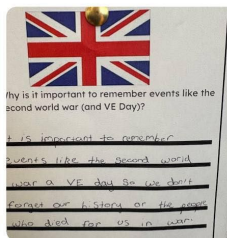 Why is it important to remember events like the
second world war (and VE Day)?
it is important to remember
events like the second world
war a VE day so we don't
forget our history or the people
who died for us in war.